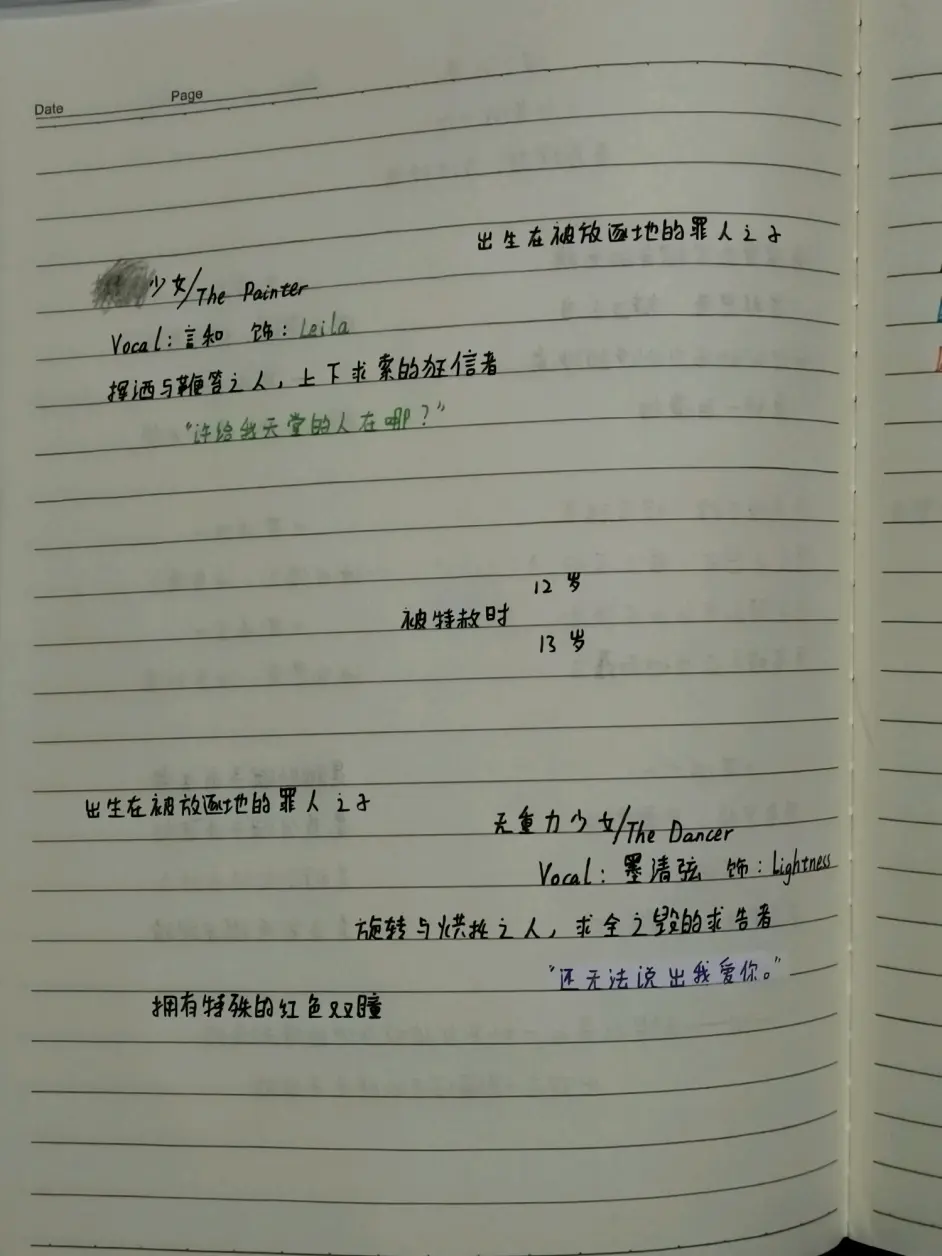 Date Page
出生在被放逐地的罪人之子
少女/The Painter
Vocal: 言和 饰: Leila
挥洒与鞭笞之人, 上下求索的狂信者
“许给我天堂的人在哪?”
12 岁
被特赦时
13 岁
出生在被放逐地的罪人之子
无重力少女/The Dancer
Vocal: 墨清弦 饰: Lightness
旋转与烘托之人, 求全之毁的求告者
“还无法说出我爱你。”
拥有特殊的红色双瞳